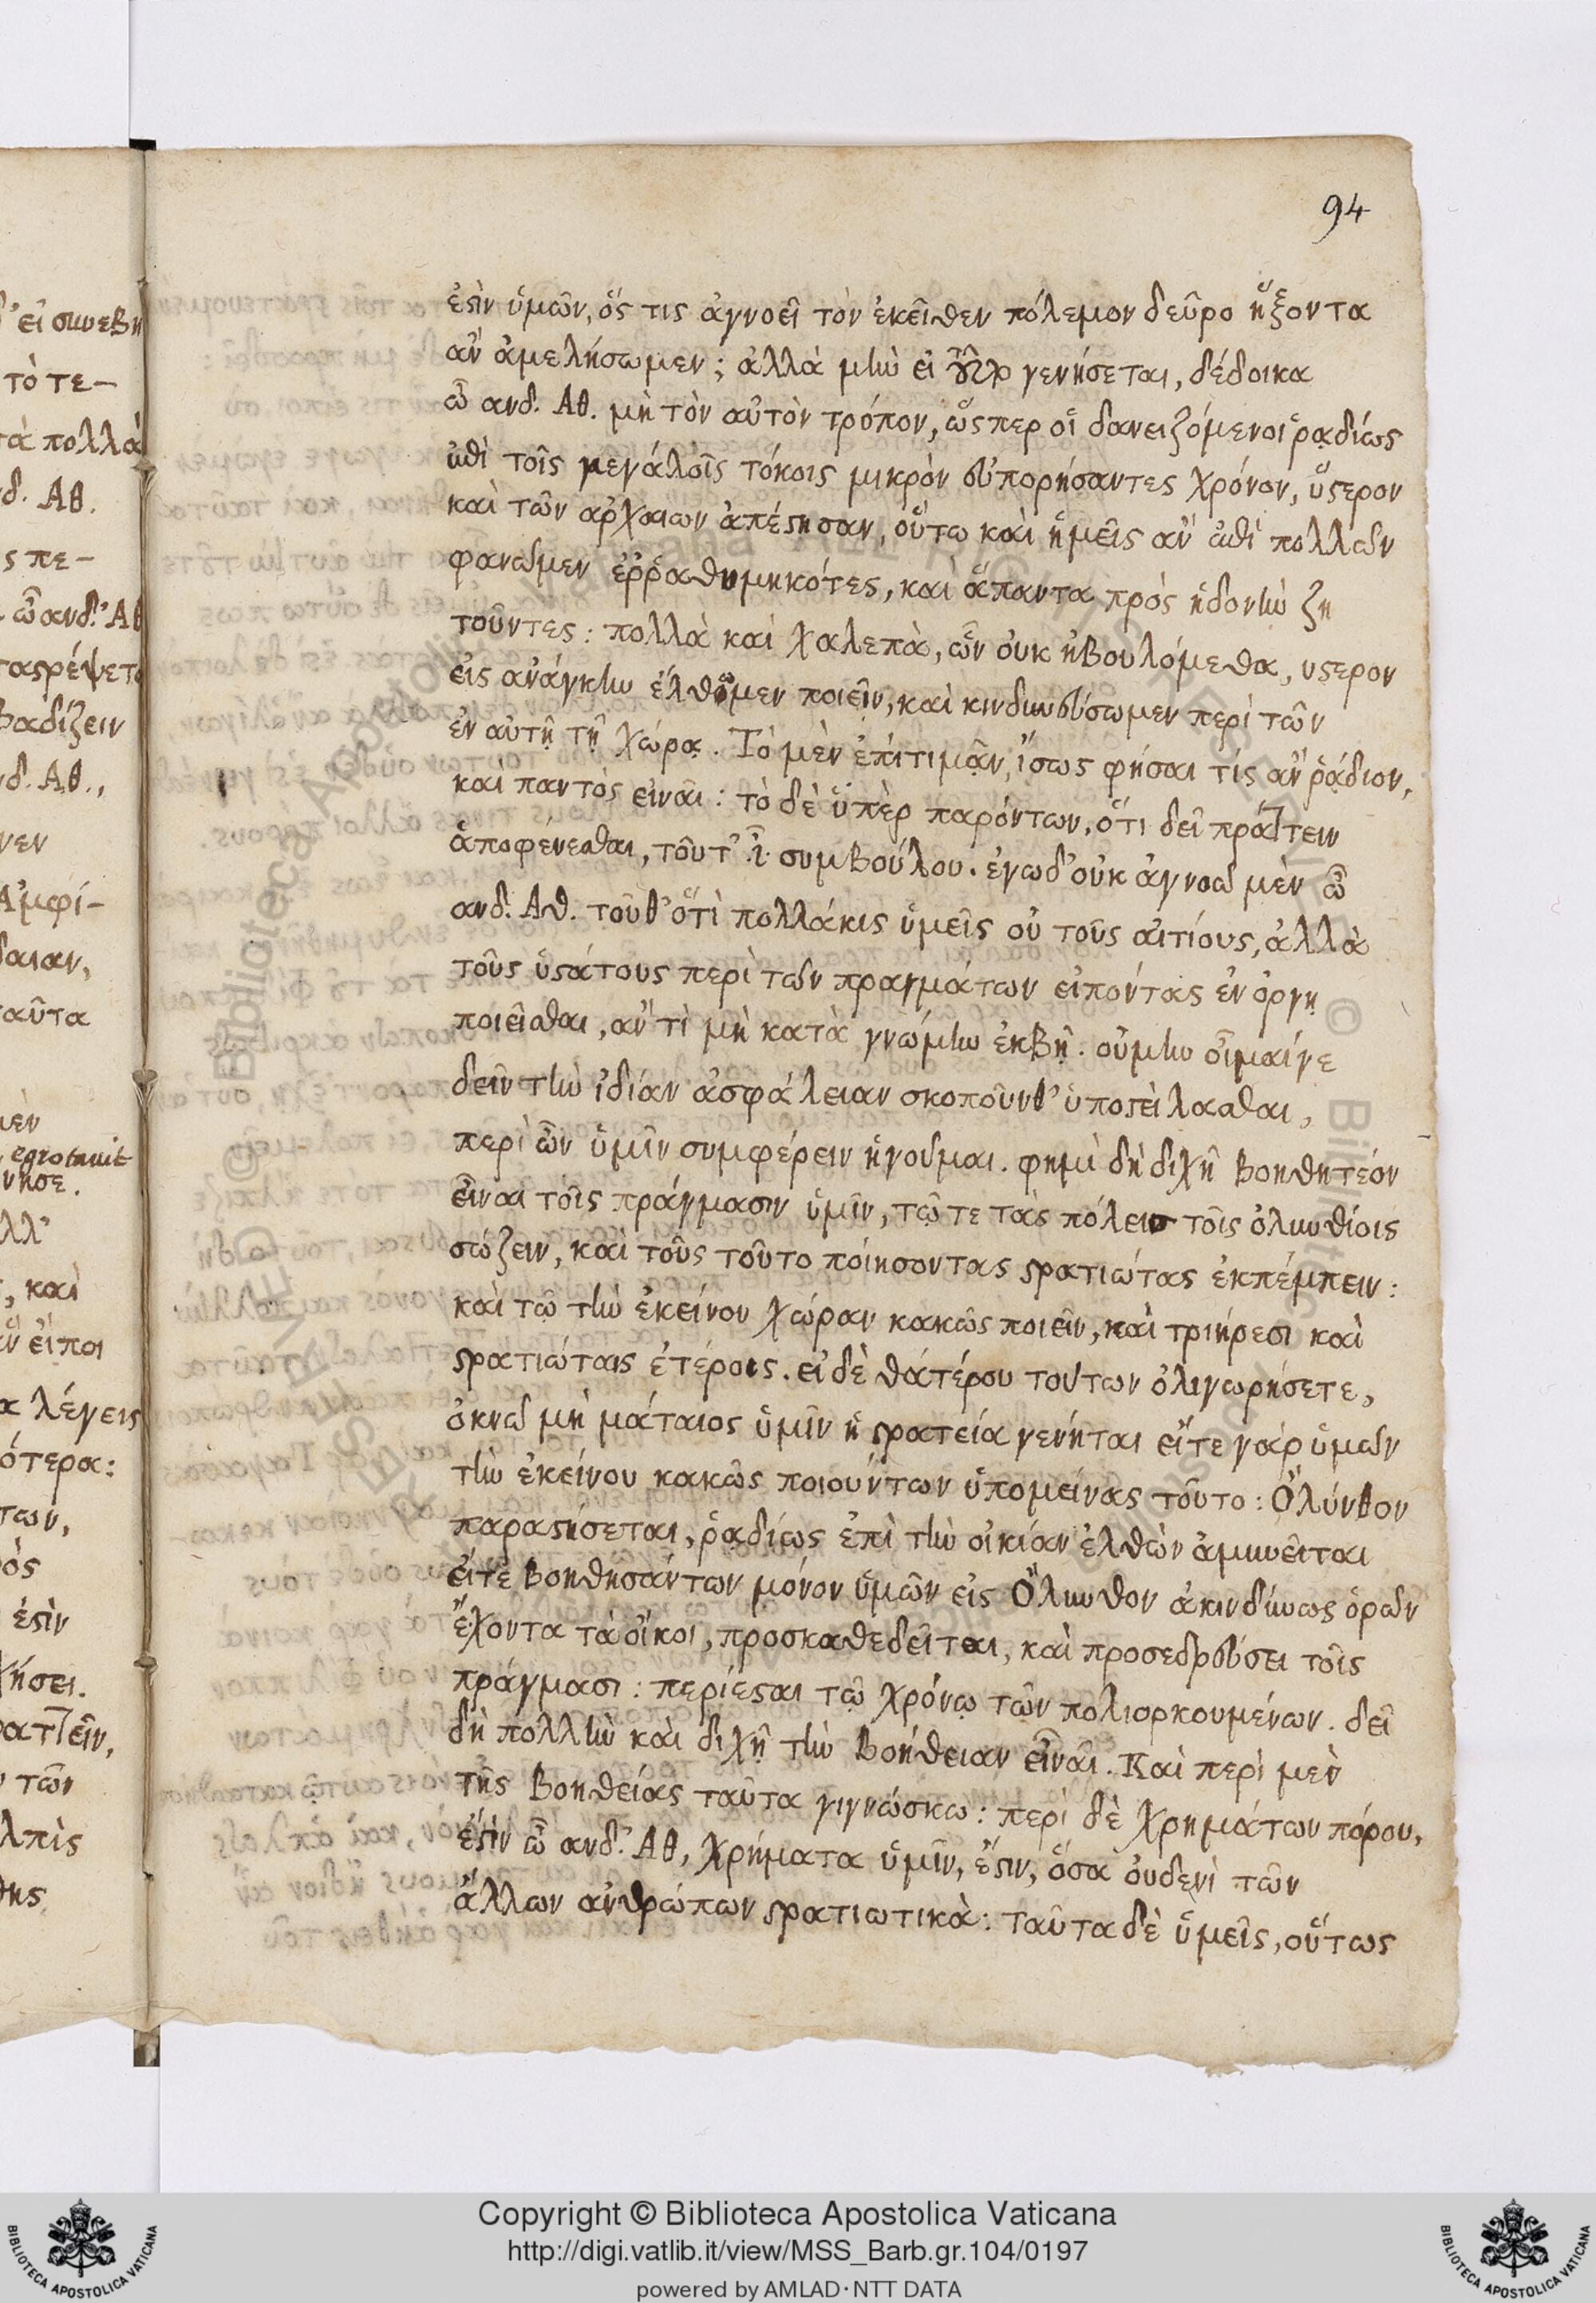 94
ἐστὶν ὑμῶν, ὅς τις ἀγνοεῖ τὸν ἐκεῖθεν πόλεμον δεῦρο ἥξοντα
ἀν ἀμελήσωμεν; ἀλλὰ μὴν εἰ τοῦτο γενήσεται, δέδοικα
ὦ ανδ. Αθ. μὴ τὸν αὐτὸν τρόπον, ὥςπερ οἱ δανειζόμενοι ῥᾳδίως
ἐπὶ τοῖς μεγάλοις τόκοις μικρὸν εὐπορήσαντες χρόνον, ὕστερον
καὶ τῶν αρχαιων ἀπέστησαν, οὕτω καὶ ἡμεῖς αν ἐπὶ πολλῶν
φανῶμεν ἐῤῥαθυμηκότες, καὶ ἅπαντα πρὸς ἡδονὴν ζη
τοῦντες: πολλὰ καὶ χαλεπὰ, ὧν ουκ ἠβουλόμεθα, υστερον
εἰς ανάγκην έλθωμεν ποιεῖν, καὶ κινδυνεύσωμεν περὶ τῶν
ἐν αὐτῇ τῇ χώρᾳ. Τὸ μὲν ἐπιτιμᾷν, ἴσως φήσαι τίς αν ῥᾴδιον,
καὶ παντὸς εἶναι: τὸ δὲ ὑπὲρ παρόντων, ὅτι δεῖ πράττειν
ἀποφένεσθαι, τοῦτ' .ἶ. συμβούλου. ἐγωδ' οὐκ ἀγνοῶ μὲν ὦ
ανδ. Αθ. τοῦθ' ὅτὶ πολλάκις ὑμεῖς οὐ τοῦς αἰτίους, ἀλλὰ
τοῦς ὑστάτους περὶ τῶν πραγμάτων εἰπόντας ἐν ὀργῃ
ποιεῖσθαι, αν τὶ μὴ κατὰ γνώμην ἐκβῇ. οὐμὴν οἶμαίγε
δεῖν τὴν ἰδίαν ἀσφάλειαν σκοποῦνθ' ὑποστειλασθαι,
περὶ ὧν ὑμῖν συμφέρειν ἡγουμαι. φημὶ δὴ διχῇ βοηθητέον
εἶναι τοῖς πράγμασιν ὑμῖν, τῷ τε τὰς πόλεις τοῖς ὀλυνθίοις
σώζειν, καὶ τοῦς τοῦτο ποίησοντας στρατιώτας ἐκπέμπειν:
καὶ τῷ τὴν ἐκείνον χώραν κακῶς ποιεῖν, καὶ τριήρεσι καὶ
στρατιώταις ἑτέροις. εἰ δὲ θάτέρου τούτων ὀλιγωρήσετε,
ὀκνῶ μὴ μάταιος ὑμῖν ἡ στρατεία γενήται εἴτε γὰρ ὑμῶν
τὴν ἐκείνου κακῶς ποιούντων ὑπομείνας τοῦτο: Ὀλύνθον
παραστήσεται, ῥᾳδίως ἐπὶ τὴν οἰκίαν ἐλθὼν ἀμυνεῖται
εἴτε βοηθησάντων μόνον ὑμῶν εἰς Ὄλυνθον ἀκινδύνως ὁρῶν
ἔχοντα τὰ οἴκοι, προσκαθεδεῖται, καὶ προσεδρεύσει τοῖς
πράγμασι: περίεσται τῷ χρόνῳ τῶν πολιορκουμένων. δεῖ
δὴ πολλὴν καὶ διχῇ τὴν βοήθειαν εἶναι. Καὶ περὶ μὲν
τῆς βοηθείας ταῦτα γιγνώσκω: περὶ δὲ χρημάτων πόρου,
ἔστιν ὦ ανδ. Αθ, χρήματα ὑμῖν, ἔστιν, ὅσα ὀυδενὶ τῶν
ἄλλων ανθρώπων στρατιωτικὰ: ταῦτα δὲ ὑμεῖς, οὕτως
Copyright © Biblioteca Apostolica Vaticana
http://digi.vatlib.it/view/MSS_Barb.gr.104/0197
powered by AMLAD·NTT DATA